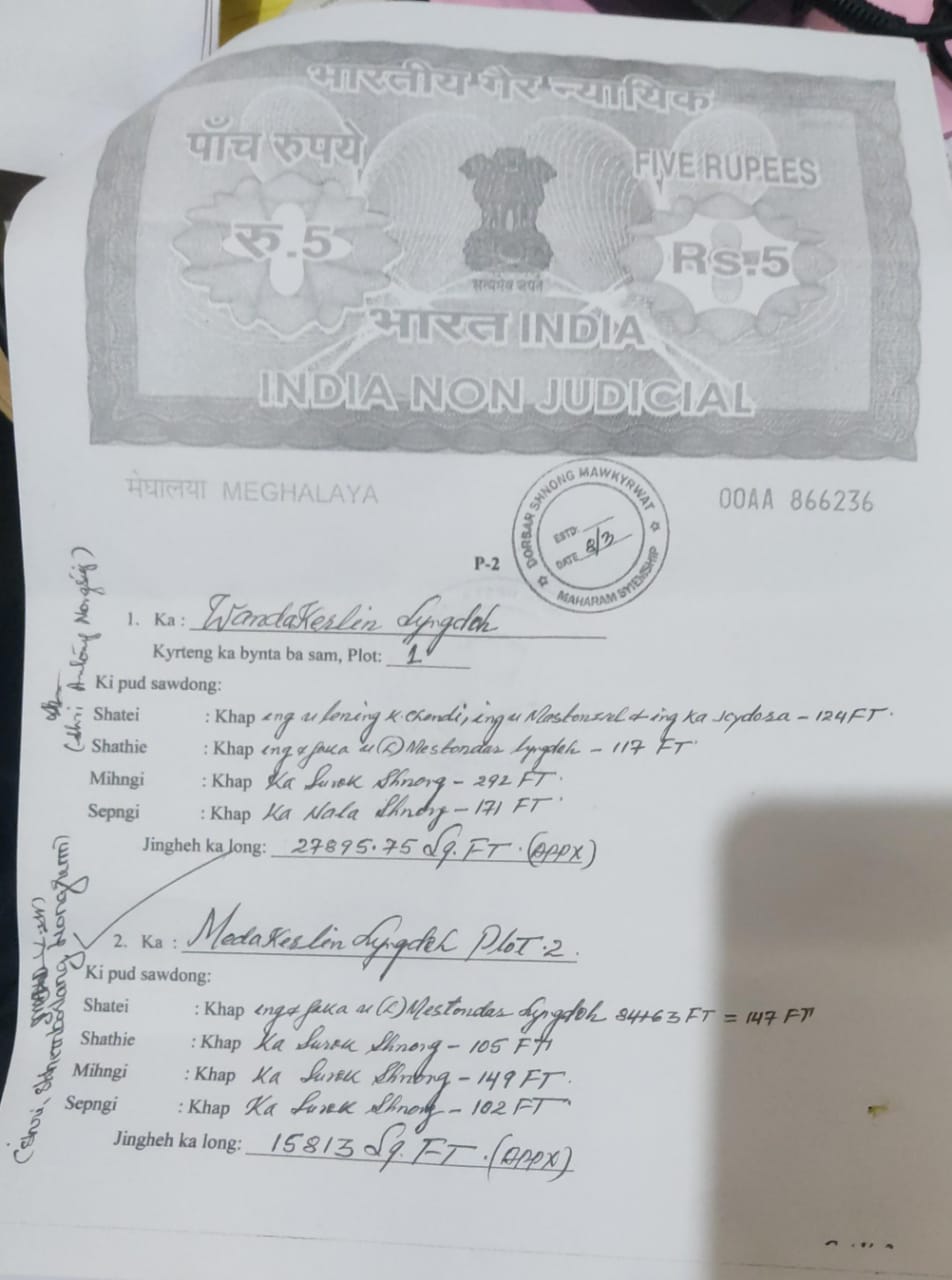 भारतीय गैर न्यायिक
पाँच रुपये
FIVE RUPEES
रु.5
Rs.5
सत्यमेव जयते
भारत INDIA
INDIA NON JUDICIAL
मेघालया MEGHALAYA
00AA 866236
DORBAR SHNONG MAWKYRWAT
ESTD:
DATE 8/3
MAHARAM SYIEMSHIP
P-2
1. Ka : WandaKerlin Lyngdoh
Kyrteng ka bynta ba sam, Plot: 1
Ki pud sawdong:
Shatei : Khap ing u K. ing u ing ka - 124 FT.
Shathie : Khap ing & u (L) Mestondar Lyngdoh - 117 FT
Mihngi : Khap Ka Surok Shnong - 292 FT.
Sepngi : Khap Ka Nala Shnong - 171 FT
Jingheh ka long: 27895.75 Sq. FT. (APPX)
2. Ka : MedaKerlin Lyngdoh Plot.2
Ki pud sawdong:
Shatei : Khap ing & u (L) Mestondar Lyngdoh 84+63 FT = 147 FT
Shathie : Khap Ka Surok Shnong - 105 FT
Mihngi : Khap Ka Surok Shnong - 149 FT.
Sepngi : Khap Ka Surok Shnong - 102 FT
Jingheh ka long: 15813 Sq. FT. (APPX)